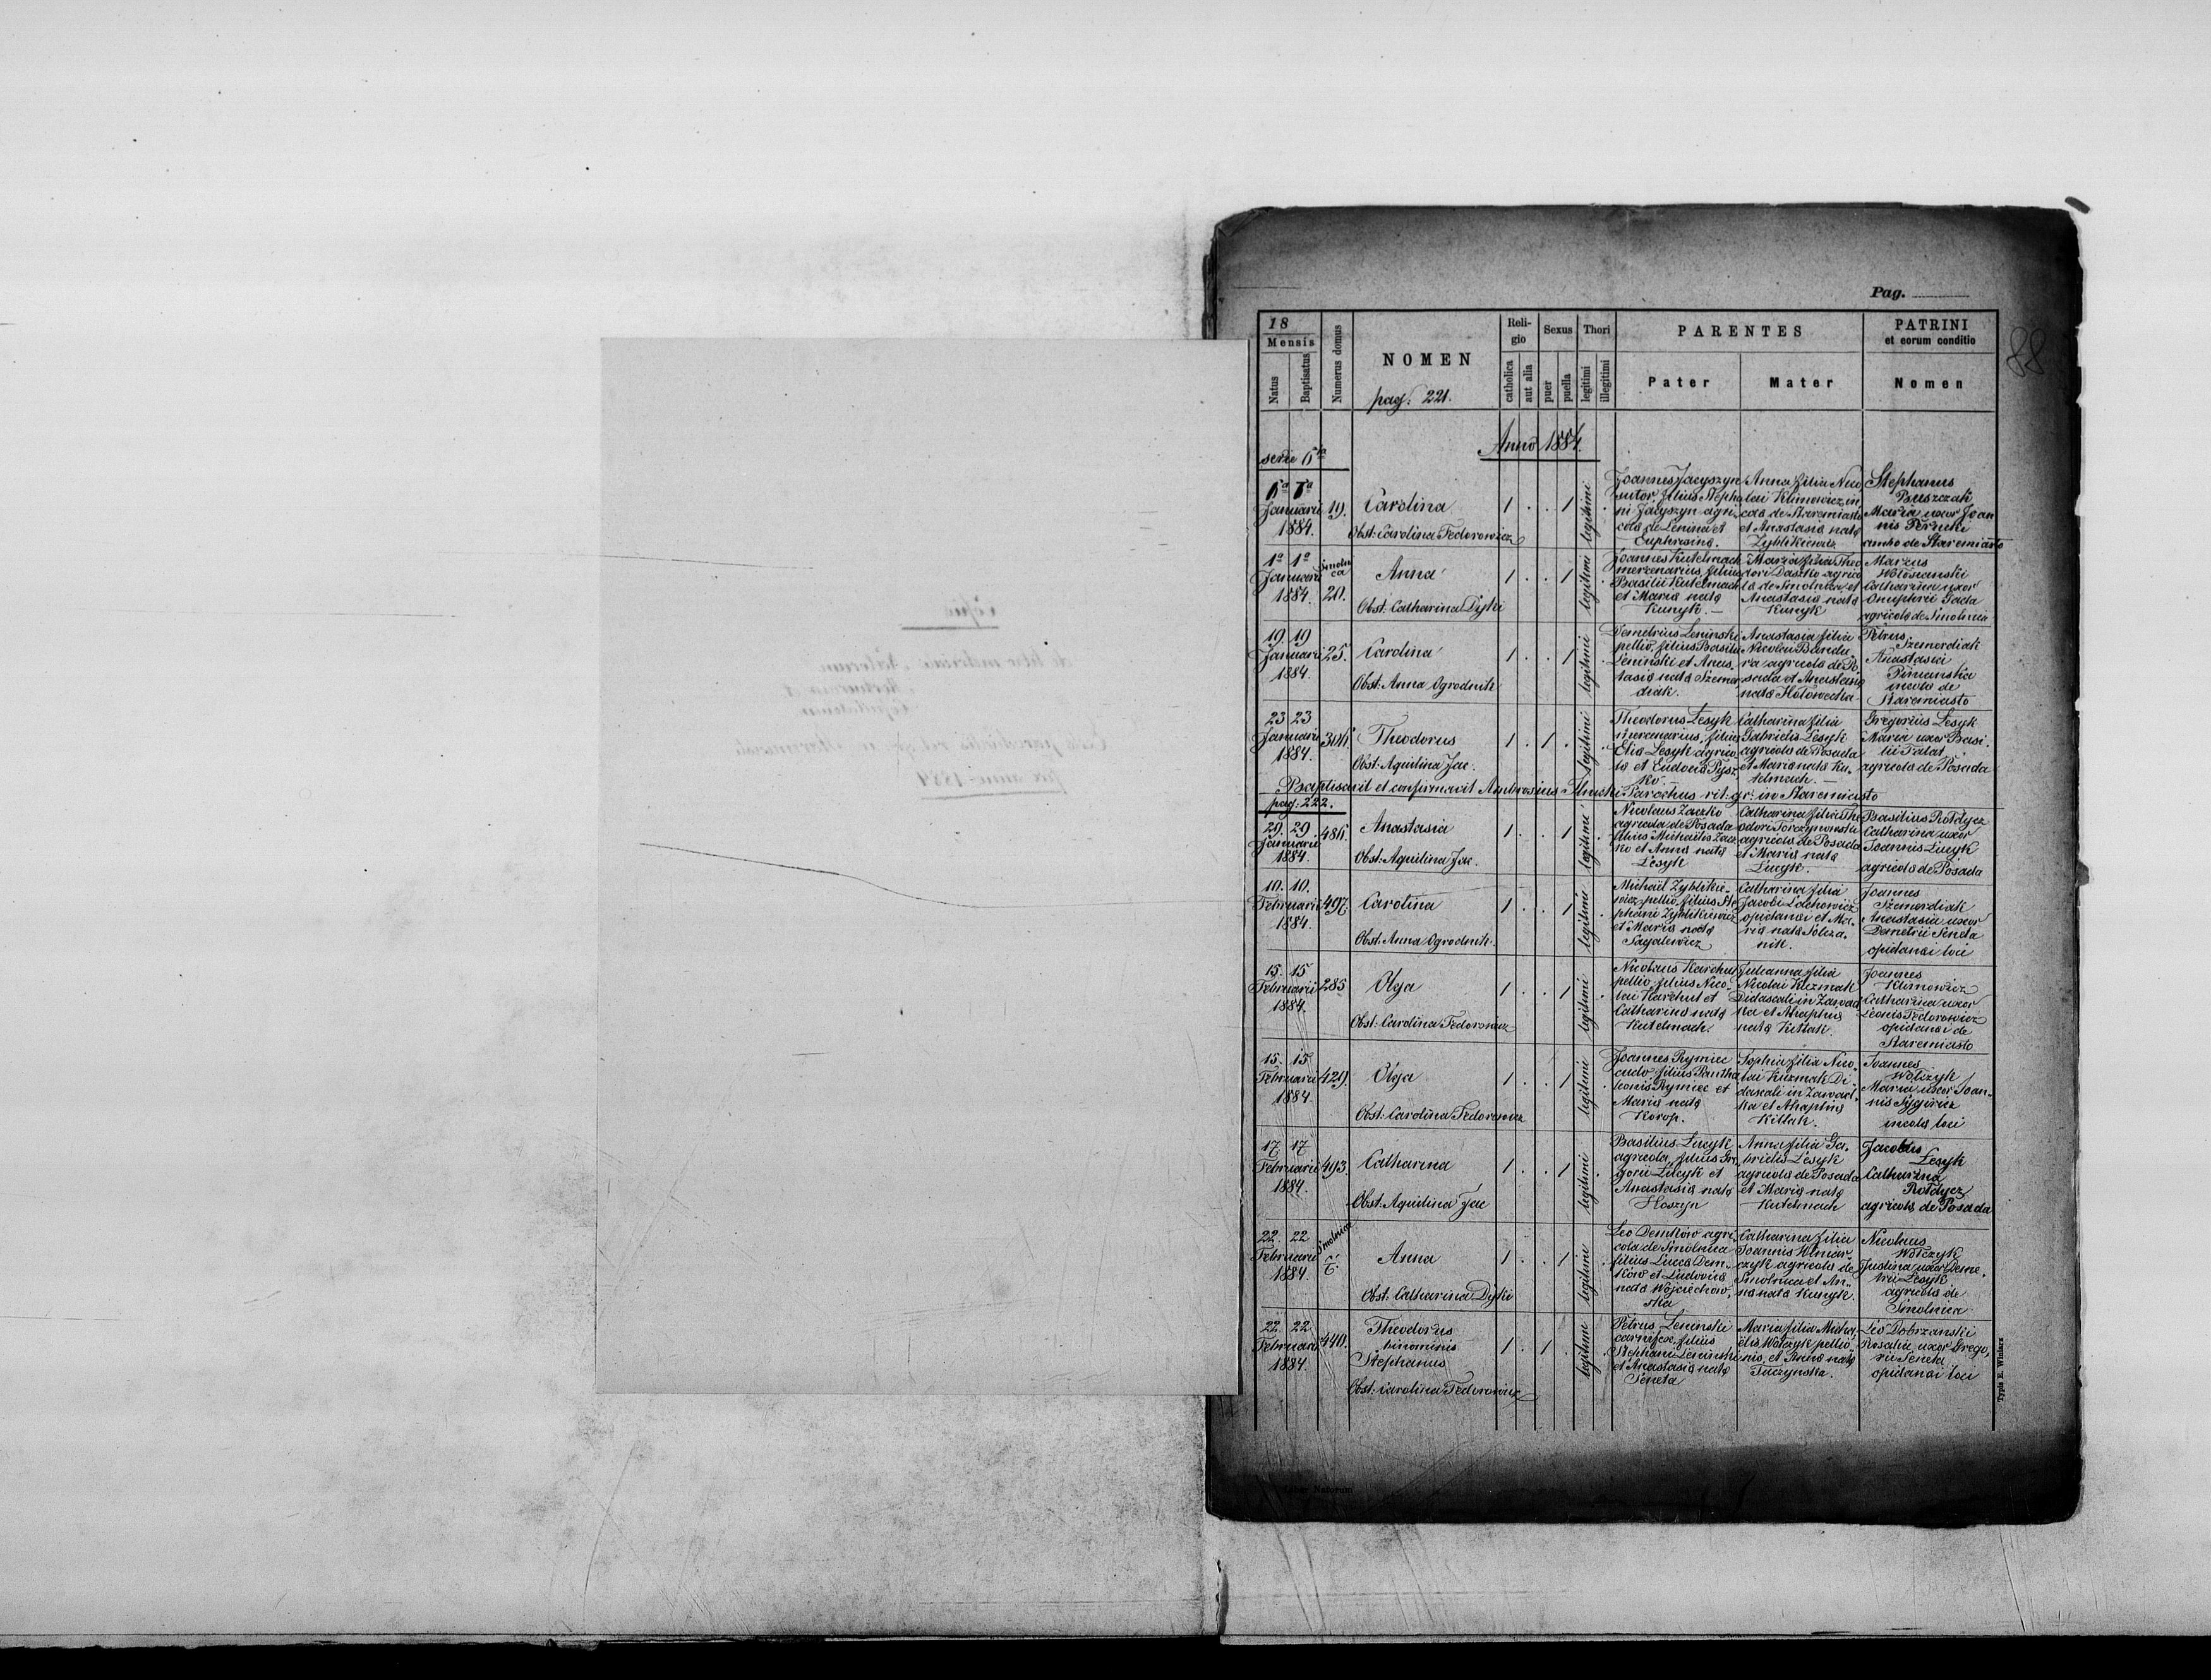 Pag.
88
18
Mensis
Natus
Baptisatus
Numerus domus
NOMEN
pag: 221.
Reli-
gio
catholica
aut alia
Sexus
puer
puella
Thori
legitimi
illegitimi
PARENTES
Pater
Mater
PATRINI
et eorum conditio
Nomen
Anno 1884.
serie
6a 7a
Januarii
1884.
19.
Carolina
Obst: Carolina Fedorowicz
1 . . 1
legitimi
Joannes Jacyszyn
sutor, filius Stepha
ni Jacyszyn agri-
cola de Lenina et
Euphrosina.
Anna filia Nico
lai Klimowicz in
cola de Staremiasto
et Anastasia nata
Zyblikiewicz
Stephanus
Puszczak
Maria uxor Joan
nis Ternicki
ambo de Staremiasto
1a 1a
Januarii
1884.
Smolni
ca
20.
Anna
Obst: Catharina Dyki
1 . . 1
legitimi
Joannes Kutelmach
mercenarius, filius
Basilii Kutelmach
et Maria nata
Kunyk. —
Maria filia Theo
dori Daszko agrico
la de Smolnica, et
Anastasia nata
Kunyk
Marcus
Wolosianski
Catharina uxor
Onuphrii Gada
agricola de Smolnica
19. 19
Januarii
1884.
25.
Carolina
Obst: Anna Ogrodnik
1 . . 1
legitimi
Demetrius Leninski
pellio, filius Basilii
Leninski et Anas-
tasia nata Szemer
diak.
Anastasia filia
Nicolai Bandu-
ra agricola de Po
sada et Anastasia
nata Holowecka
Petrus
Szemerdiak
Anastasia
Pinianska
incola de
Staremiasto
23 23
Januarii
1884.
306.
Theodorus
Obst: Aquilina Jac.
1 . 1 .
legitimi
Theodorus Lesyk
mercenarius, filius
Elia Lesyk agrico
la et Eudocia Pysz
ko. —
Catharina filia
Gabrielis Lesyk
agricola de Posada
et Maria nata Ku-
telmach. —
Gregorius Lesyk
Maria uxor Basi-
lii Falat
agricola de Posada
Baptisavit et confirmavit Ambrosius Ilnicki Parochus rit: gr: in Staremiasto
pag: 222.
29. 29
Januarii
1884.
486.
Anastasia
Obst: Aquilina Jac.
1 . . 1
legitimi
Nicolaus Zaczko
agricola de Posada
filius Michaelis Zacz
ko et Anna nata
Lesyk
Catharina filia The
odori Torczynowski
agricola de Posada
et Maria nata
Lucyk.
Basilius Rotdycz
Catharina uxor
Joannis Lucyk
agricola de Posada
10. 10.
Februarii
1884.
497.
Carolina
Obst: Anna Ogrodnik.
1 . . 1
legitimi
Michaël Zyblikie-
wicz, pellio, filius Ste
phani Zyblikiewicz
et Maria nata
Sagalewicz
Catharina filia
Jacobi Lachowicz
opidanai et Ma-
ria nata Solcza-
nik.
Joannes
Szemerdiak
Anastasia uxor
Demetrii Seneta
opidanai loci
15. 15
Februarii
1884.
285
Olga
Obst: Carolina Fedorowicz
1 . . 1
legitimi
Nicolaus Karchut
pellio, filius Nico-
lai Karchut et
Catharina nata
Kutelmach.
Julianna filia
Nicolai Kuzmak
Didascali in Zawad
ka et Ahaphia
nata Kittak.
Joannes
Klimowicz
Catharina uxor
Leonis Fedorowicz
opidanai de
Staremiasto
15. 15
Februarii
1884.
429.
Olga
Obst: Carolina Fedorowicz
1 . . 1
legitimi
Joannes Rymiec
cudo, filius Pantha
leonis Rymiec et
Maria nata
Korop.
Sophia filia Nico-
lai Kuzmak Di-
dascali in Zawad-
ka et Ahaphia
Kittak.
Joannes
Wolczyk
Maria uxor Joan-
nis
incola loci
17 17
Februarii
1884.
493.
Catharina
Obst: Aquilina Jac
1 . . 1
legitimi
Basilius Lucyk
agricola, filius Gre
gorii Lucyk et
Anastasia nata
Hoszyn
Anna filia Ga-
brielis Lesyk
agricola de Posada
et Maria nata
Kutelmach
Jacobus
Lesyk
Catharina
Rotdycz
agricola de Posada
22. 22
Februarii
1884.
Smolnica
6.
Anna
Obst: Catharina Dyki
1 . . 1
legitimi
Leo Demkow agri-
cola de Smolnica
filius Luca Dem-
kow et Ludovica
nata Wojciechow-
ska
Catharina filia
Joannis Winiar-
czyk agricola de
Smolnica et An-
na nata Kunyk.
Nicolaus
Wolczyk
Justina uxor Deme-
trii Lesyk
agricola de
Smolnica
22. 22
Februarii
1884.
440.
Theodorus
binominis
Stephanus
Obst: Carolina Fedorowicz
1 . 1 .
legitimi
Petrus Leninski
carnifex, filius
Stephani Leninski
et Anastasia nata
Seneta
Maria filia Micha-
elis Wolczyk pellio-
nis, et Anna nata
Tuczynska.
Leo Dobrzanski
Rosalia uxor Grego-
rii Seneta
opidanai loci
Typis E. Winiarz
Liber Natorum